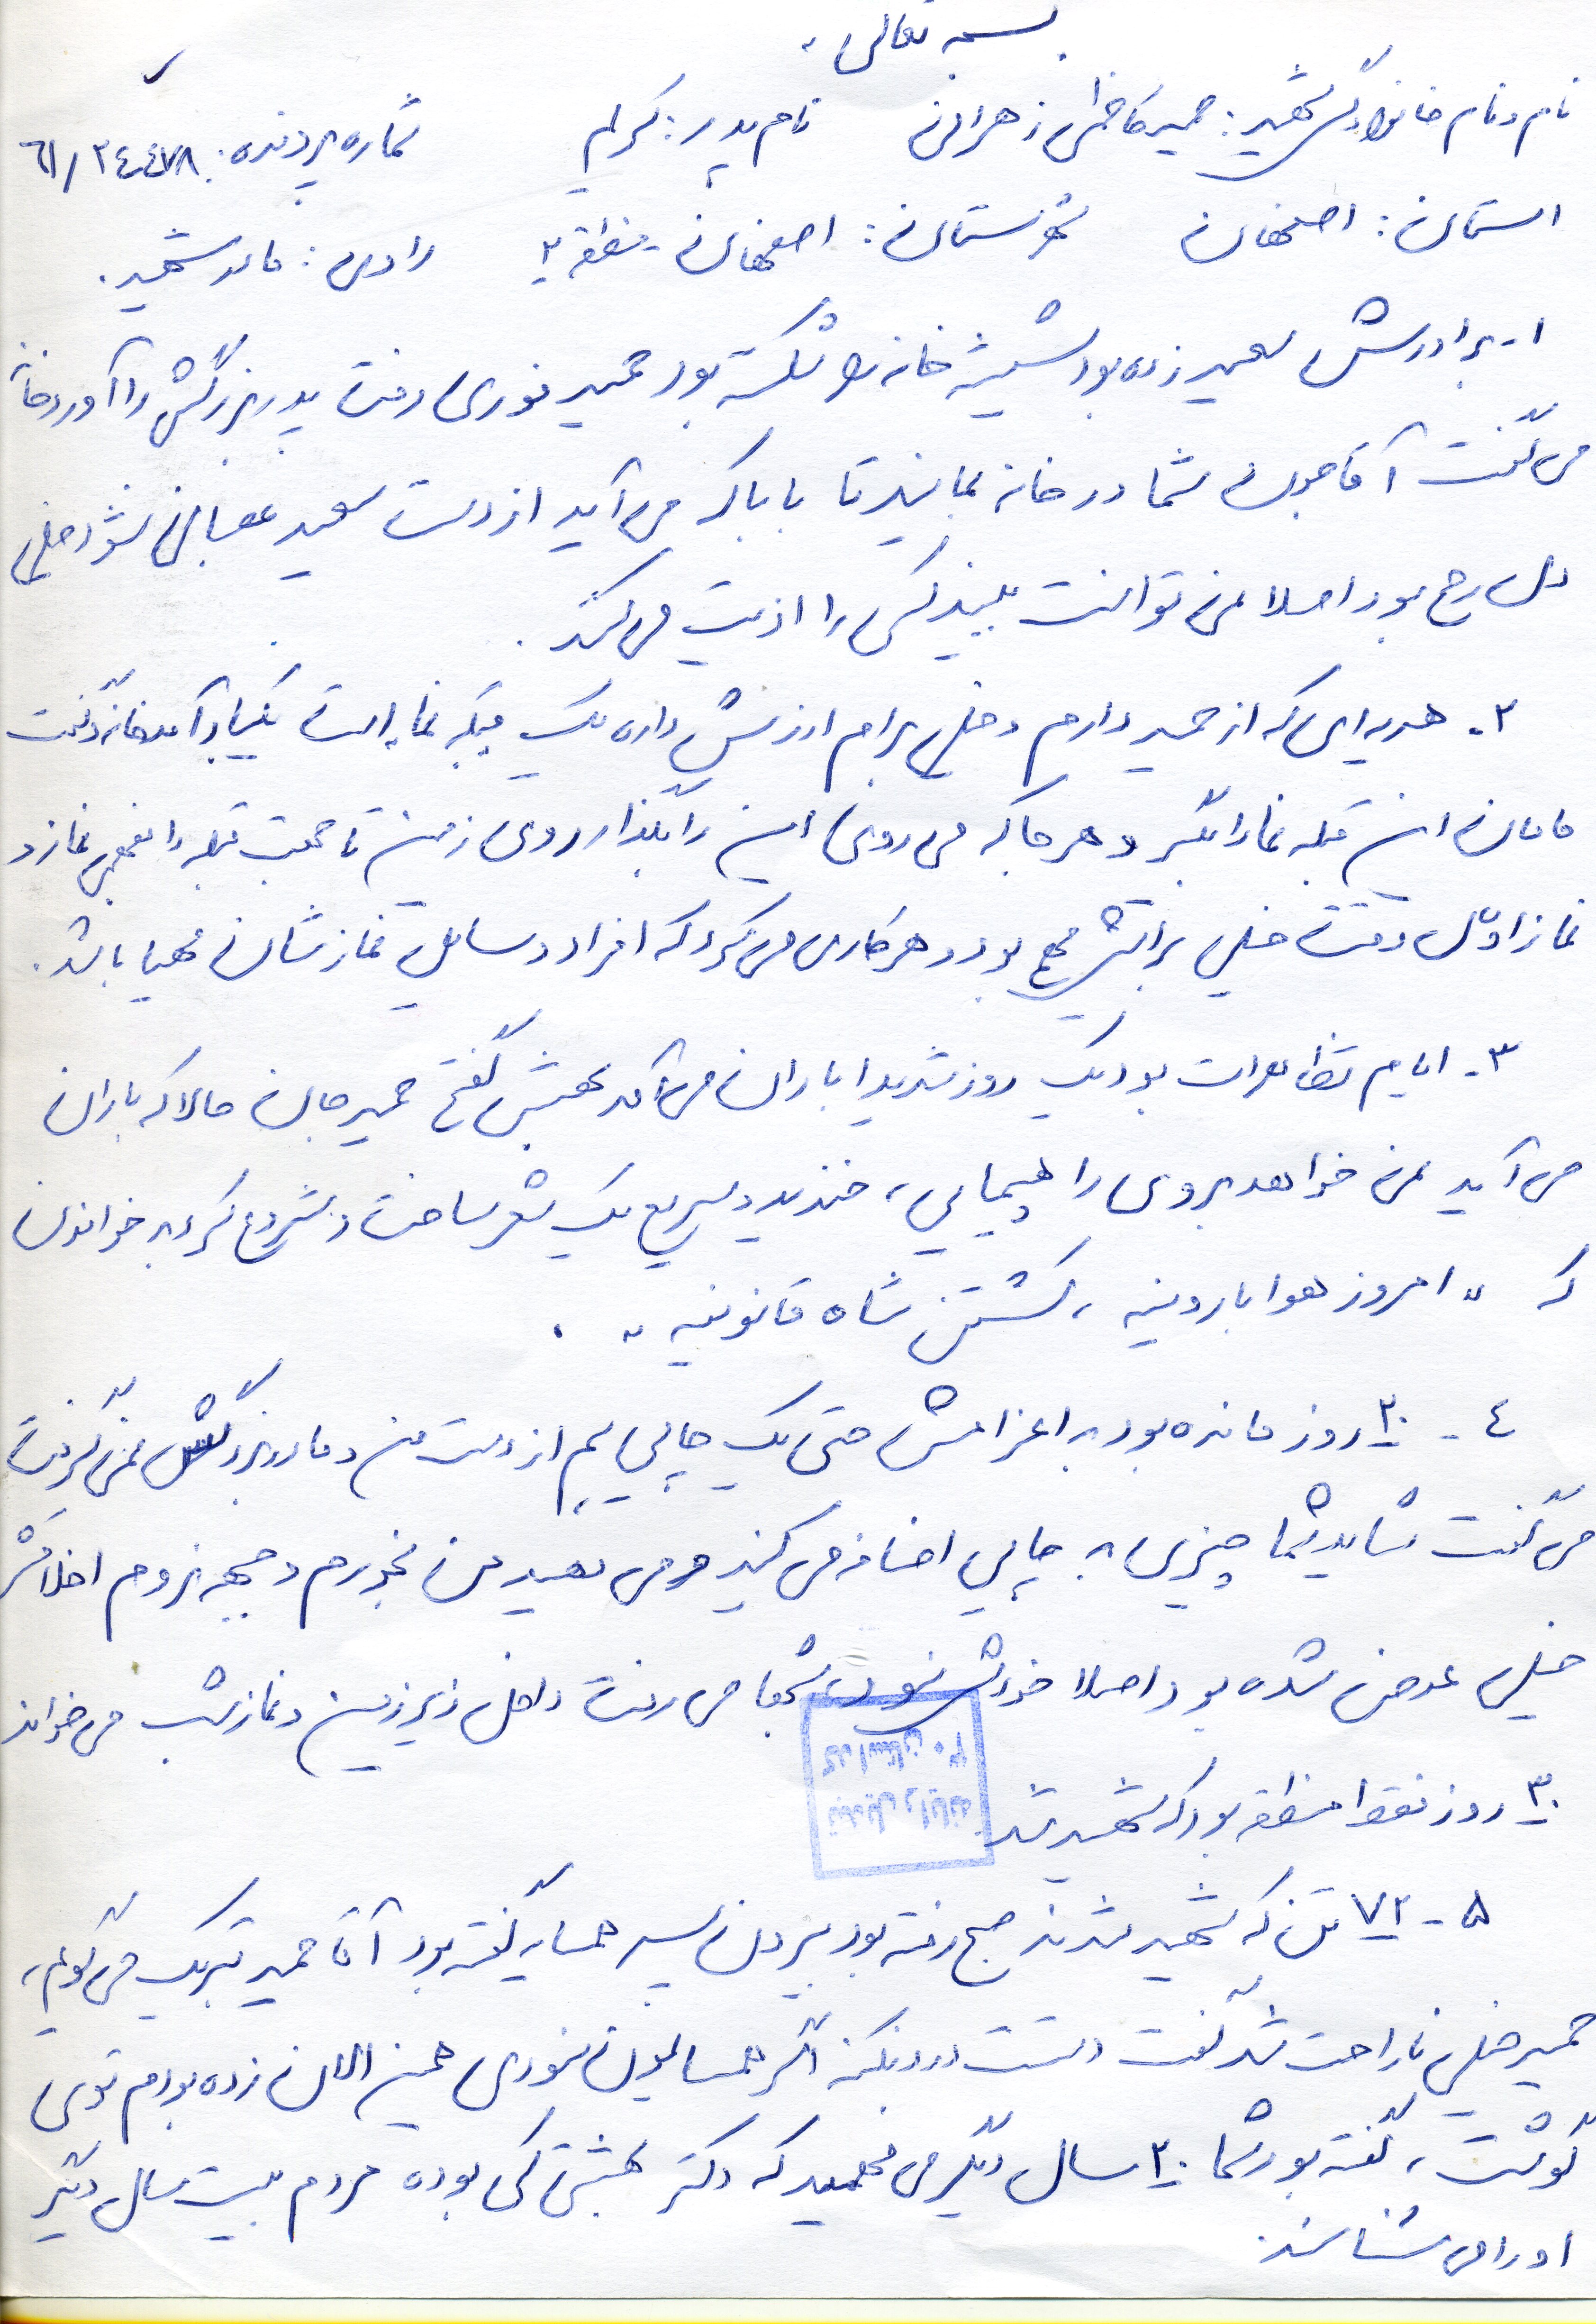 بسمه تعالی
نام و نام خانوادگی شهید: حمید کاظمی زهرانی نام پدر: کریم شماره پرونده: ۶۱/۲۴۴۷۸
استان: اصفهان شهرستان: اصفهان منطقه ۲ راوی: مادر شهید.
۱- برادرش سعید زده بود شیشه خانه را شکسته بود حمید فوری رفت پدربزرگش را آورد خانه
می گفت آقاجون شما در خانه بمانید تا بابا که می آید از دست سعید عصبانی نشود خیلی
دل رحم بود اصلا نمی توانست ببیند کسی را اذیت می کنند.
۲- هدیه ای که از حمید دارم و خیلی برام ارزش داره یک قبله نما است یکبار آمد خانه و گفت
مامان این قبله نما را بگیر و هر جا که می روی این را بگذار روی زمین تا جهت قبله را بفهمی نماز و
نماز اوّل وقت خیلی برایش مهم بود و هر کاری می کرد که افراد وسایل نمازشان مهیا باشد.
۳- ایام تظاهرات بود یک روز شدیدا باران می آمد بهش گفتم حمید جان حالا که باران
می آید نمی خواهد بروی راهپیمایی، خندید و سریع یک شعر ساخت و شروع کرد به خواندن
که " امروز هوا بارونیه ، کشتن شاه قانونیه " .
۴- ۲۰ روز مانده بود به اعزامش حتی یک چایی هم از دست من و مادربزرگش نمی گرفت
می گفت شاید شما چیزی به چایی اضافه می کنید و می دهید من بخورم و جبهه نروم اخلاقش
خیلی عوض شده بود اصلا خودش نبود، شبها می رفت داخل زیرزمین و نماز شب می خواند
۳۰ روز فقط منطقه بود که شهید شد
کد استان ۳۰
تبدیل رایانه
۵- ۷۲ تن که شهید شدند صبح رفته بود بیرون پسر همسایه گفته بود آقا حمید تبریک می گویم،
حمید خیلی ناراحت شد گفت دستت درد نکنه اگر همسایمون نبودی همین الان زده بودم توی
گوشت، گفته بود شما ۲۰ سال دیگر می فهمید که دکتر بهشتی کی بوده مردم بیست سال دیگر
او را می شناسند.